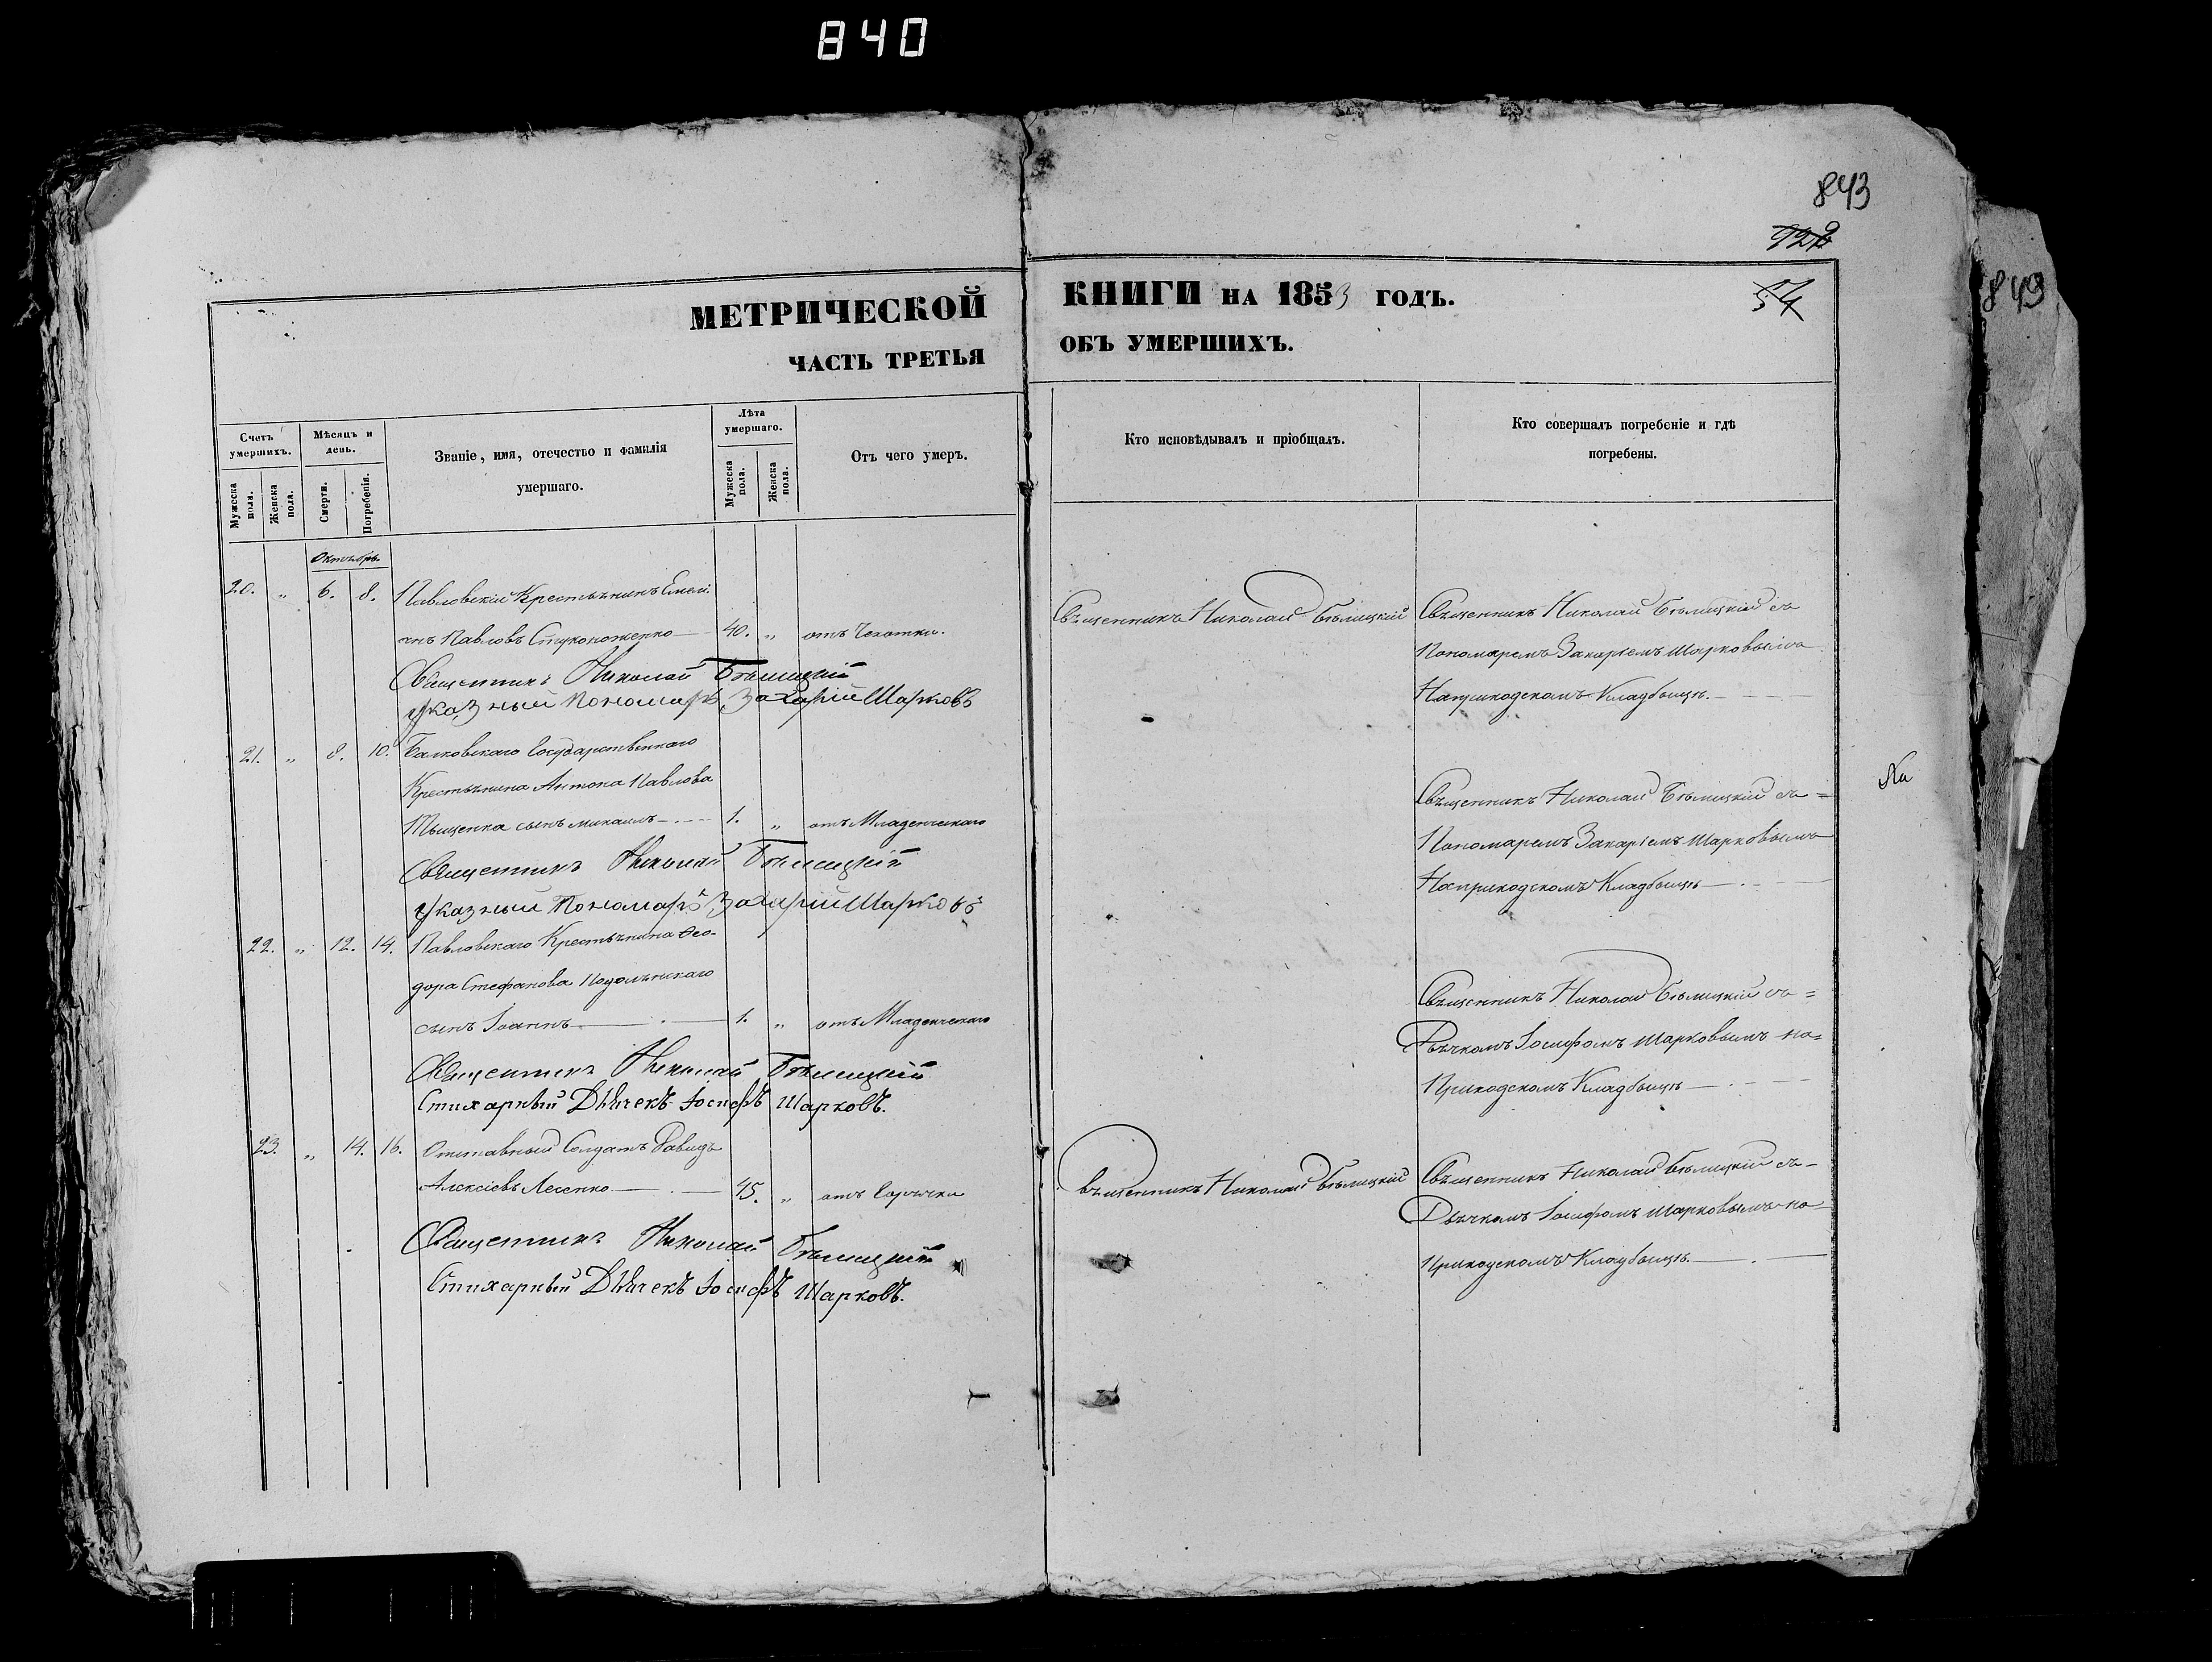 840
843
843
МЕТРИЧЕСКОЙ
ЧАСТЬ ТРЕТЬЯ
КНИГИ НА 1853 ГОДЪ.
ОБЪ УМЕРШИХЪ.
Счетъ умершихъ.
Мужеска пола.
Женска пола.
Мѣсяцъ и день.
Смерти.
Погребенія.
Званіе, имя, отечество и фамилія
умершаго.
Лѣта умершаго.
Мужеска пола.
Женска пола.
Отъ чего умеръ.
Кто исповѣдывалъ и пріобщалъ.
Кто совершалъ погребеніе и гдѣ
погребены.
Октябрь
20. „ 6. 8. Павловскій Крестьянинъ Емел.
янъ Павловъ Стуконоженко 40. „ отъ Чахотки.
Священникъ Николай Бѣлицкій
Священникъ Николай Бѣлицкій съ
Пономаремъ Захаріемъ Шарковымъ
На приходскомъ Кладбищѣ.
Священникъ Николай Бѣлицкій
Указный Пономарь Захарій Шарковъ
21. „ 8. 10. Балковскаго Государственнаго
Крестьянина Антона Павлова
Тыщенка сынъ Михаилъ 1. „ отъ Младенческаго
Священникъ Николай Бѣлицкій съ =
Пономаремъ Захаріемъ Шарковымъ
На приходскомъ Кладбищѣ
На
Священникъ Николай Бѣлицкій
Указный Пономарь Захарій Шарковъ
22. „ 12. 14. Павловскаго Крестьянина Ѳео-
дора Стефанова Подолянскаго
сынъ Іоаннъ 1. „ отъ Младенческаго
Священникъ Николай Бѣлицкій съ =
Дьячкомъ Іосифомъ Шарковымъ на=
Приходскомъ Кладбищѣ
Священникъ Николай Бѣлицкій
Стихарный Дьячекъ Іосифъ Шарковъ.
23. „ 14. 16. Отставный Солдатъ Давидъ
Алексіевъ Лесенко 45. „ отъ Горячки
Священникъ Николай Бѣлицкій
Священникъ Николай Бѣлицкій съ-
Дьячкомъ Іосифомъ Шарковымъ на
Приходскомъ Кладбищѣ.
Священникъ Николай Бѣлицкій
Стихарный Дьячекъ Іосифъ Шарковъ.